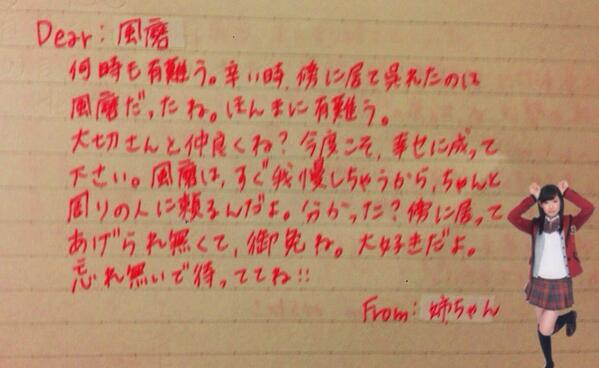 Dear: 風磨
何時も有難う。辛い時、傍に居て呉れたのは
風磨だったね。ほんまに有難う。
大切さんと仲良くね?今度こそ、幸せに成って
下さい。風磨は、すぐ我慢しちゃうから、ちゃんと
周りの人に頼るんだよ。分かった?傍に居って
あげられ無くて、御免ね。大好きだよ。
忘れ無いで待っててね!!
From: 姉ちゃん